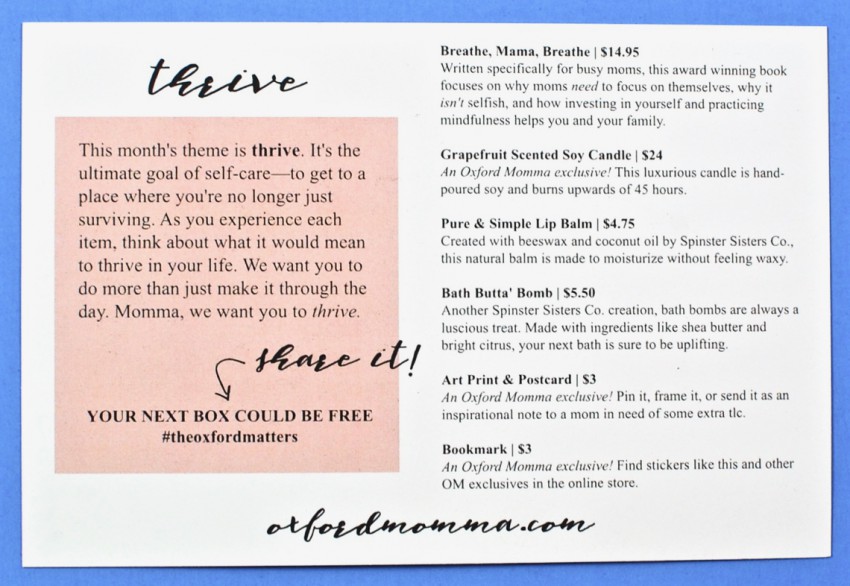 thrive
This month's theme is thrive. It's the
ultimate goal of self-care—to get to a
place where you're no longer just
surviving. As you experience each
item, think about what it would mean
to thrive in your life. We want you to
do more than just make it through the
day. Momma, we want you to thrive.
share it!
YOUR NEXT BOX COULD BE FREE
#theoxfordmatters
Breathe, Mama, Breathe | $14.95
Written specifically for busy moms, this award winning book
focuses on why moms need to focus on themselves, why it
isn't selfish, and how investing in yourself and practicing
mindfulness helps you and your family.
Grapefruit Scented Soy Candle | $24
An Oxford Momma exclusive! This luxurious candle is hand-
poured soy and burns upwards of 45 hours.
Pure & Simple Lip Balm | $4.75
Created with beeswax and coconut oil by Spinster Sisters Co.,
this natural balm is made to moisturize without feeling waxy.
Bath Butta' Bomb | $5.50
Another Spinster Sisters Co. creation, bath bombs are always a
luscious treat. Made with ingredients like shea butter and
bright citrus, your next bath is sure to be uplifting.
Art Print & Postcard | $3
An Oxford Momma exclusive! Pin it, frame it, or send it as an
inspirational note to a mom in need of some extra tlc.
Bookmark | $3
An Oxford Momma exclusive! Find stickers like this and other
OM exclusives in the online store.
oxfordmomma.com